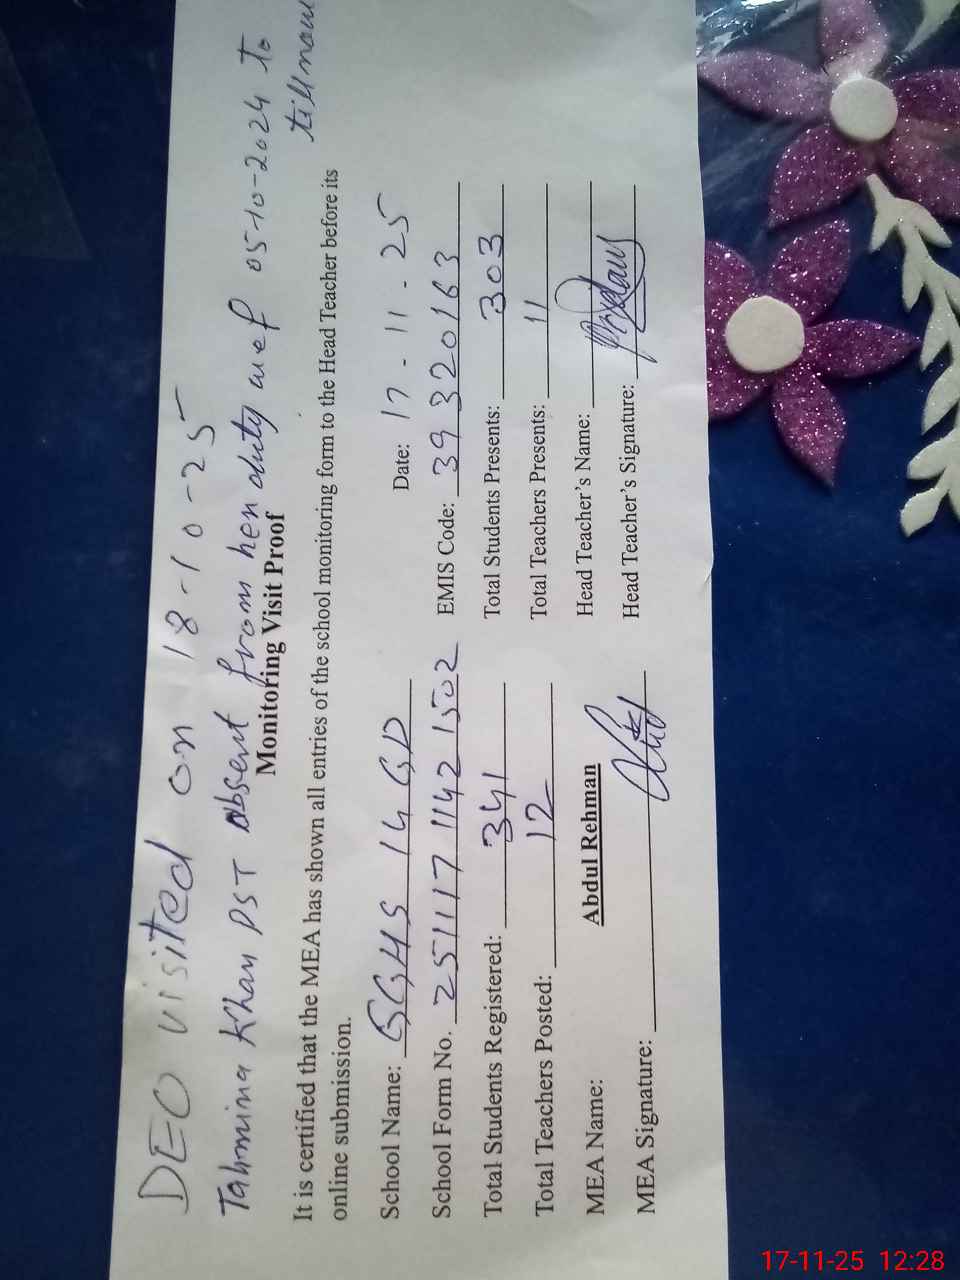 DEO visited on 18-10-25
Tahmina Khan PST absent from her duty wef 05-10-2024 to
till now
Monitoring Visit Proof
It is certified that the MEA has shown all entries of the school monitoring form to the Head Teacher before its
online submission.
School Name: GGHS 14 GD Date: 17-11-25
School Form No. 251117 1142 1502 EMIS Code: 39320163
Total Students Registered: 341 Total Students Presents: 303
Total Teachers Posted: 12 Total Teachers Presents: 11
MEA Name: Abdul Rehman Head Teacher's Name:
MEA Signature: Head Teacher's Signature:
17-11-25 12:28